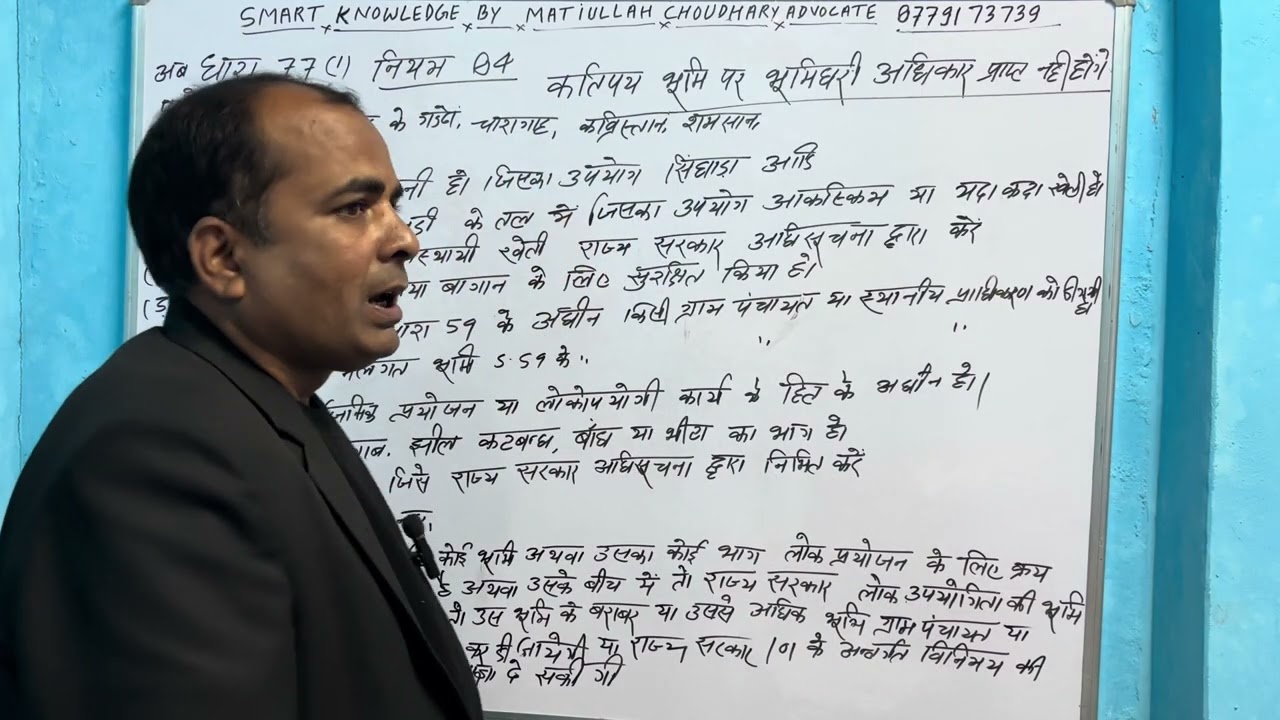 SMART KNOWLEDGE BY MATIULLAH CHOUDHARY ADVOCATE 8779173739
अब धारा 77(1) नियम 84 कतिपय भूमि पर भूमिधरी अधिकार प्राप्त नही होंगे
के गड्ढों, चारागाह, कब्रिस्तान, शमसान,
हो जिसका उपयोग सिंघाडा आदि
के तल में जिसका उपयोग आकस्मिक या यदा कदा खेती हो
खेती राज्य सरकार अधिसूचना द्वारा करें
या बागान के लिए सुरक्षित किया हो
59 के अधीन किसी ग्राम पंचायत या स्थानीय प्राधिकरण को
भूमि S. 59 के " " "
प्रयोजन या लोकोपयोगी कार्य के हित के अधीन हो।
झील कटबन्ध, बाँध या भीटा का भाग हो
जिसे राज्य सरकार अधिसूचना द्वारा निर्मित करें
कोई भूमि अथवा उसका कोई भाग लोक प्रयोजन के लिए क्रय
है अथवा उसके बीच में तो राज्य सरकार लोक उपयोगिता की भूमि
उस भूमि के बराबर या उससे अधिक भूमि ग्राम पंचायत या
या राज्य सरकार 101 के अन्तर्गत विनिमय की
दे सकेगी